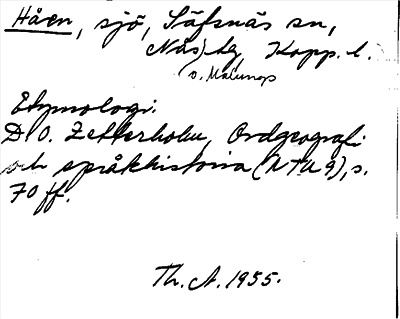 Håen, sjö, Säfsnäs sn,
Nås) hg, Kopp. l.
(o. Malungs
Etymologi:
D. O. Zetterholm, Ordgeografi
och språkhistoria (NTU 9), s.
70 ff.
Th. A. 1955.